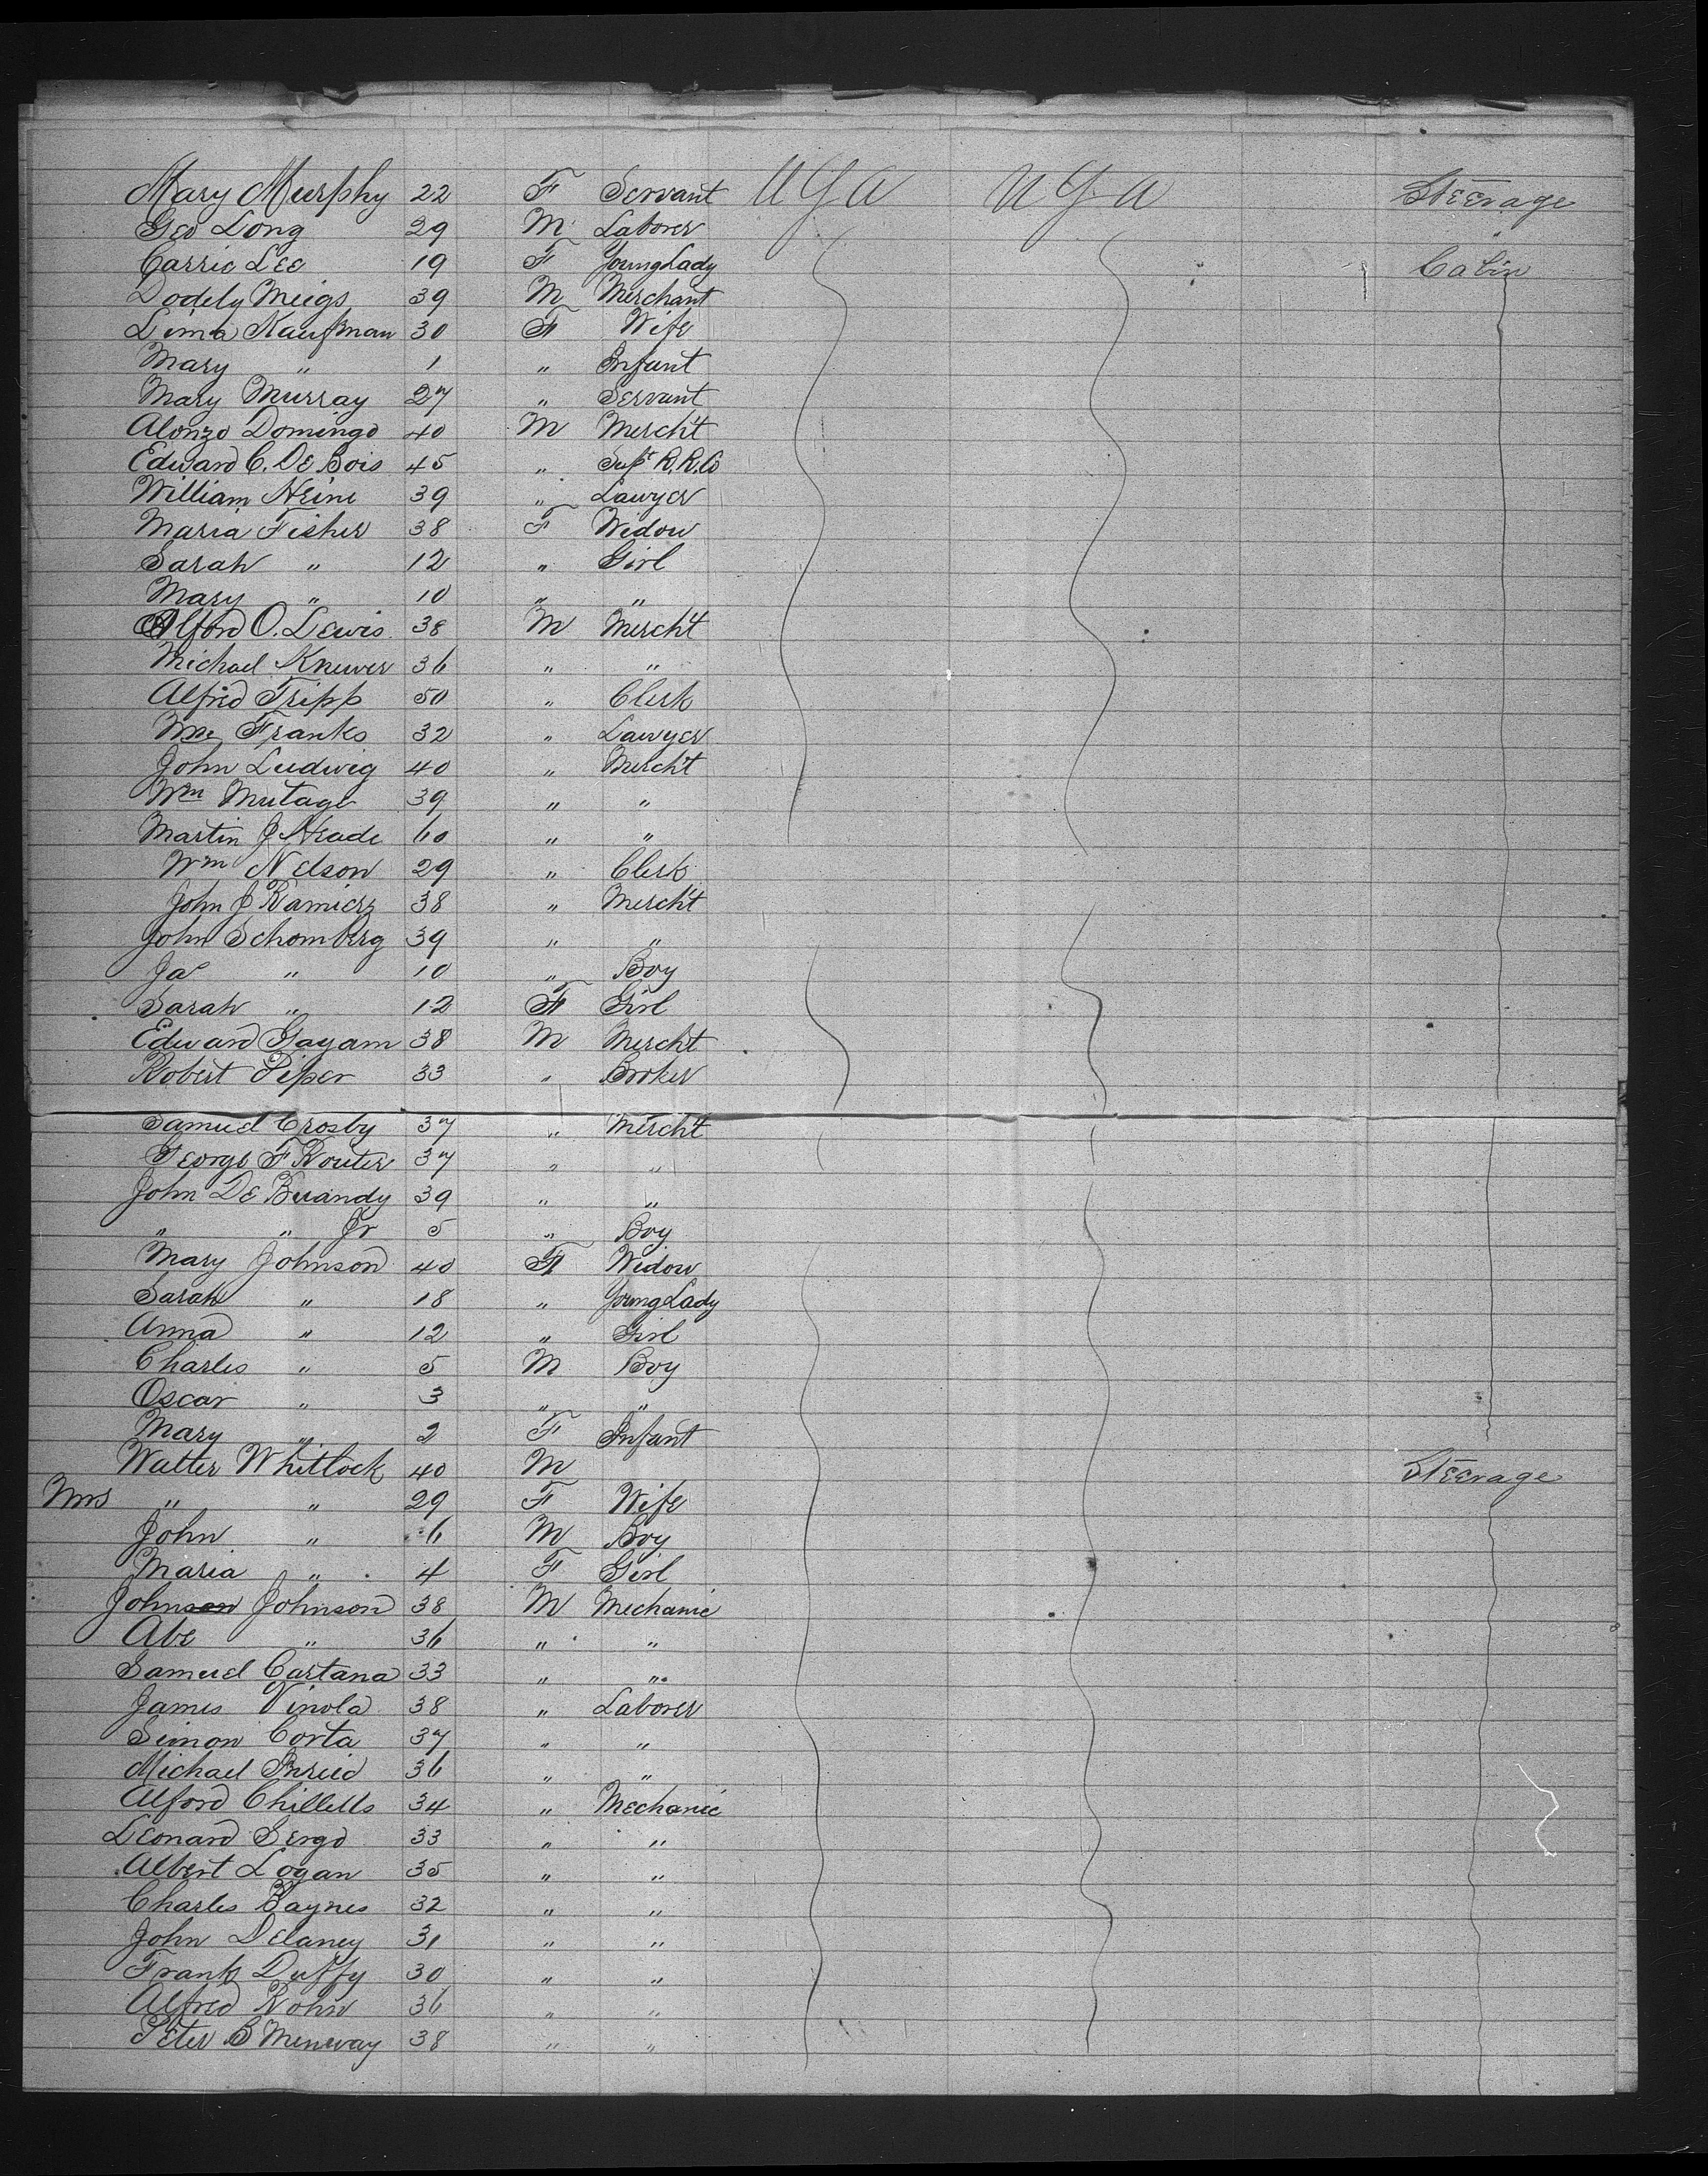 Mary Murphy 22 F Servant U S A U S A Steerage
Geo Long 29 M Laborer
Carrie Lee 19 F Young Lady Cabin
Dodely Meigs 39 M Merchant
Lima Kaufman 30 F Wife
Mary " 1 " Infant
Mary Murray 27 " Servant
Alonzo Domingo 40 M Mercht
Edward C. De Bois 45 " Supt R.R. Co
William Heine 39 " Lawyer
Maria Fisher 38 F Widow
Sarah " 12 " Girl
Mary " 10 " "
Alford O. Lewis 38 M Mercht
Michael Knewer 36 " "
Alfred Tripp 50 " Clerk
Wm Franks 32 " Lawyer
John Ludwig 40 " Mercht
Wm Mutage 39 " "
Martin J Heade 60 " "
Wm Nelson 29 " Clerk
John J Ramierz 38 " Mercht
John Schomberg 39 " "
Jas " 10 " Boy
Sarah " 12 F Girl
Edward Gayam 38 M Mercht
Robert Piper 33 " Broker
Samuel Crosby 37 " Mercht
George F Router 37 " "
John De Buandy 39 " "
" " Jr 5 " Boy
Mary Johnson 40 F Widow
Sarah " 18 " Young Lady
Anna " 12 " Girl
Charles " 5 M Boy
Oscar " 3 " "
Mary " 2 F Infant
Walter Whitlock 40 M Steerage
Mrs " " 29 F Wife
John " 6 M Boy
Maria " 4 F Girl
Johnson Johnson 38 M Mechanic
Abe " 36 " "
Samuel Cartana 33 " "
James Vinola 38 " Laborer
Simon Corta 37 " "
Michael 36 " "
Alford Chilletts 34 " Mechanic
Leonard Sergo 33 " "
Albert Logan 35 " "
Charles Baynes 32 " "
John Delaney 31 " "
Frank Duffy 30 " "
Alfred Rohn 36 " "
Peter B Menway 38 " "